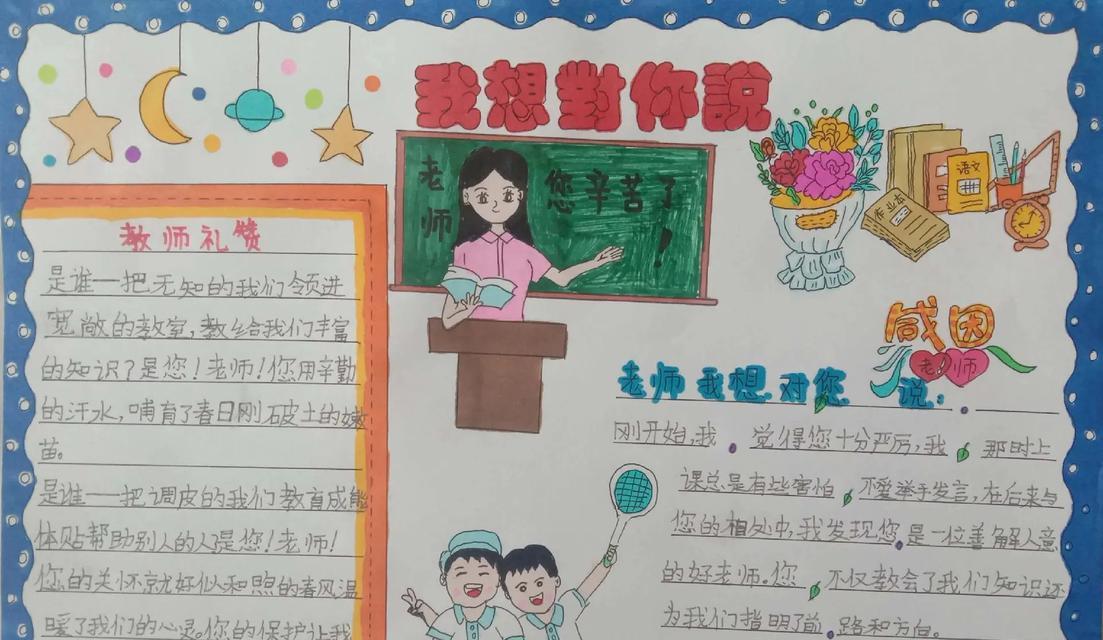 我想對你說
老师
您辛苦了!
语文
作业本
感因
老师
教师礼赞
是谁一把无知的我们领进
宽敞的教室,教给我们丰富
的知识?是您!老师!您用辛勤
的汗水,哺育了春日刚破土的嫩
苗。
是谁——把调皮的我们教育成能
体贴帮助别人的人是您!老师!
您的关怀就好似和煦的春风温
暖了我们的心灵。您的保护让我
老师我想对您说:
刚开始,我觉得您十分严厉,我那时上
课总是有些害怕,不爱举手发言,在后来与
您的相处中,我发现您是一位善解人意
的好老师。您不仅教会了我们知识还
为我们指明了前路和方向。